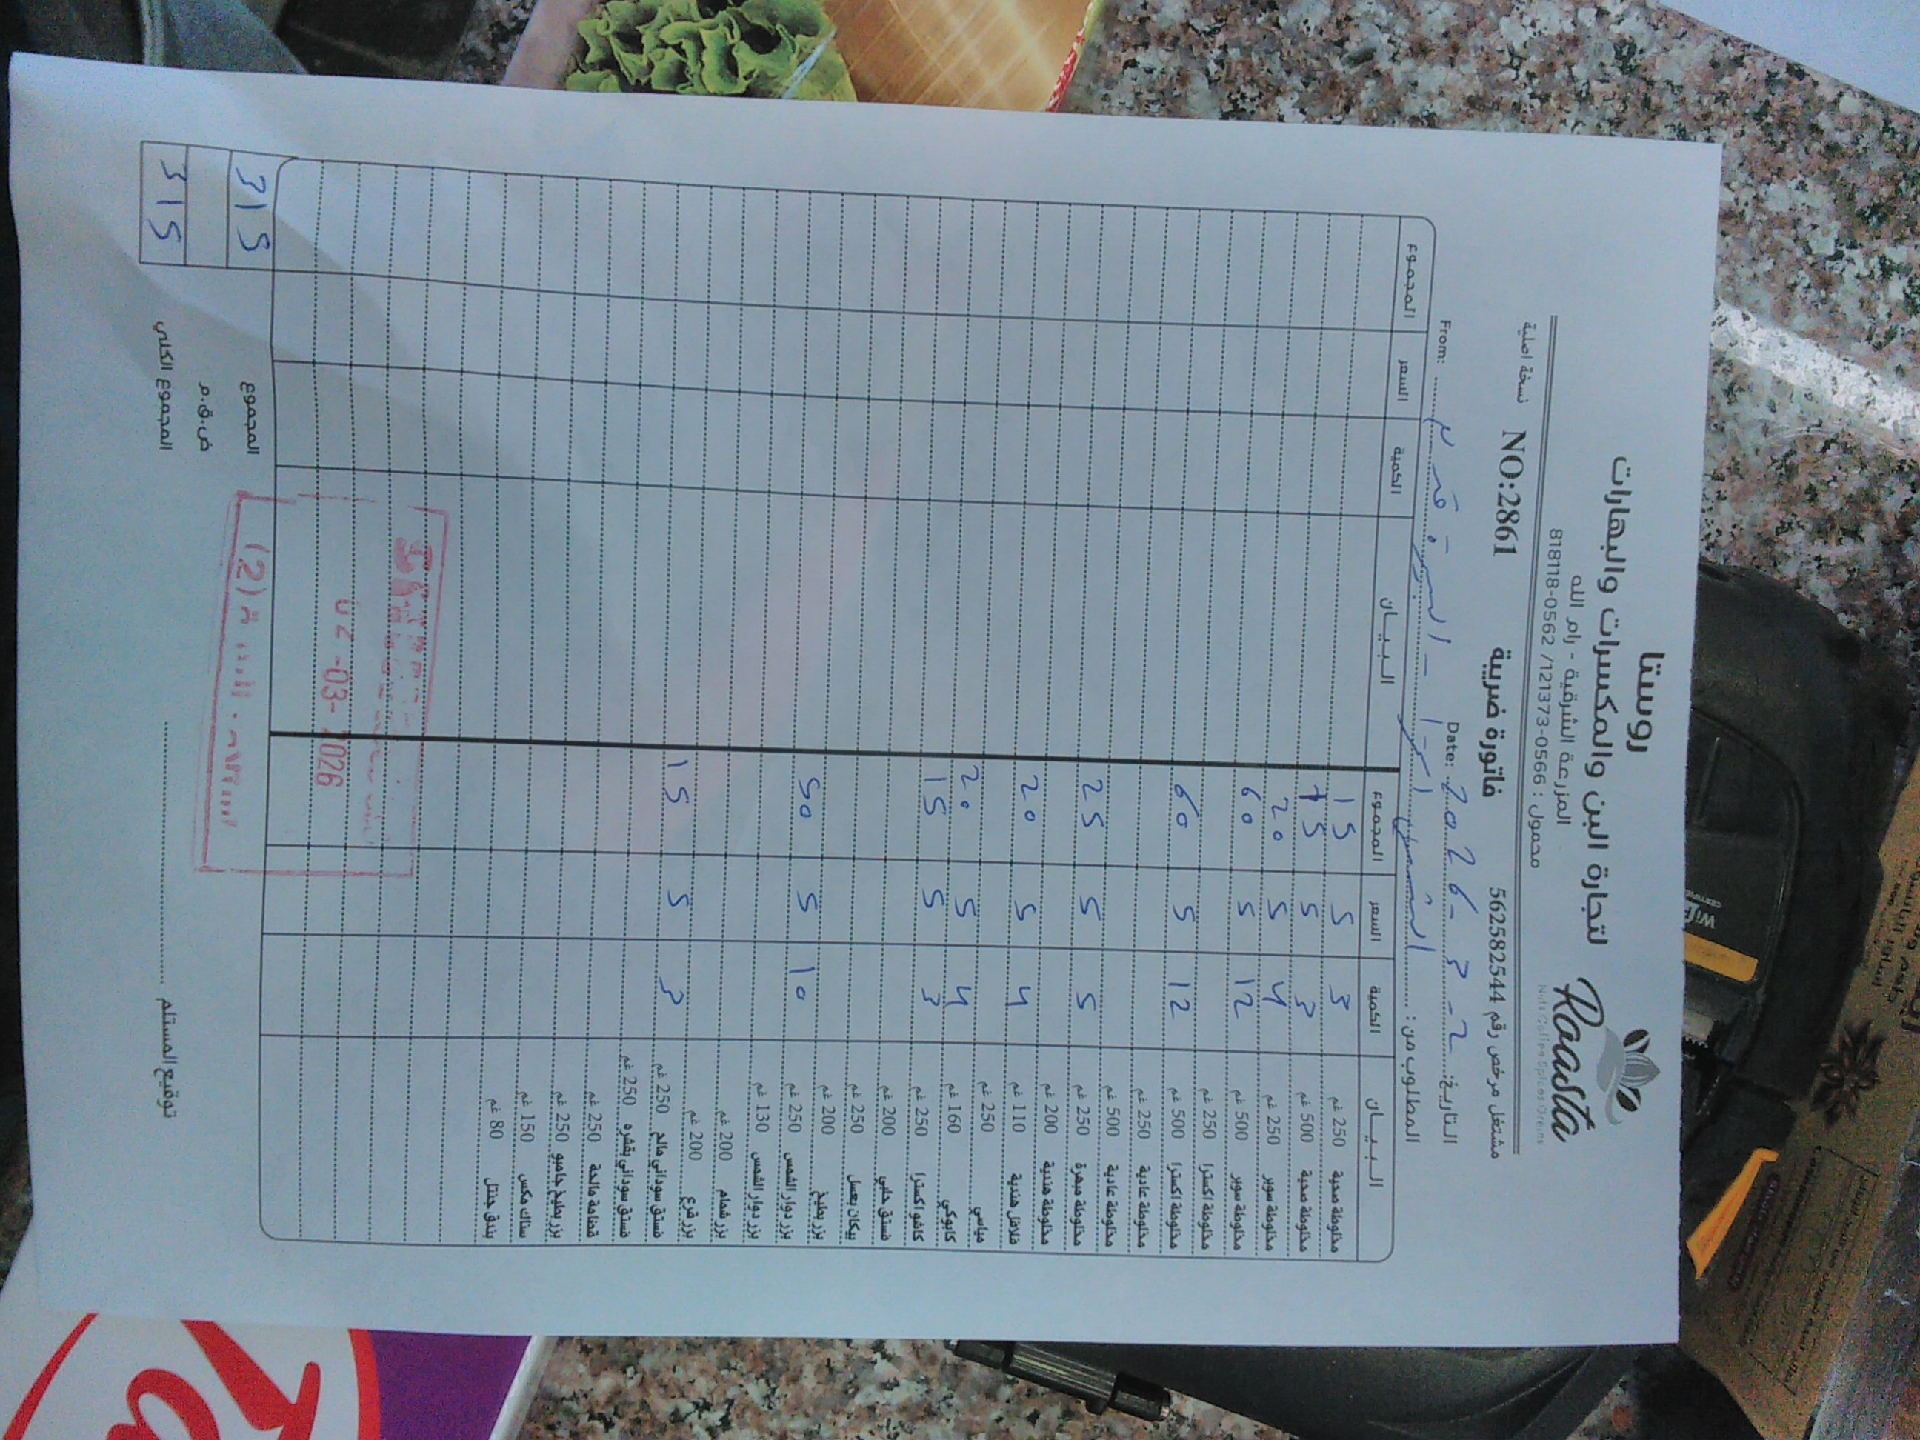 روستا
لتجارة البن والمكسرات والبهارات
المزرعة الشرقية - رام الله
محمول : 0566-121373/ 0562-818118
Roasta
Nuts Coffee Spices Grains
مشتغل مرخص رقم 562582544 فاتورة ضريبة NO:2861 نسخة اصلية
التاريخ: 2026-3-2 Date: From:
المطلوب من :
البيـــان الكمية السعر المجموع البيـــان الكمية السعر المجموع
مخلوطة صحية 250 غم 3 5 15
مخلوطة صحية 500 غم 3 5 15
مخلوطة سوبر 250 غم 4 5 20
مخلوطة سوبر 500 غم 12 5 60
مخلوطة اكسترا 250 غم
مخلوطة اكسترا 500 غم 12 5 60
مخلوطة عادية 250 غم
مخلوطة عادية 500 غم
مخلوطة مبهرة 250 غم 5 5 25
مخلوطة هندية 200 غم
فلافل هندية 110 غم 4 5 20
مياسي 250 غم
كابوكي 160 غم 4 5 20
كاشو اكسترا 250 غم 3 5 15
فستق حلبي 200 غم
بيكان بعسل 250 غم
بزر بطيخ 200 غم
بزر دوار الشمس 250 غم 10 5 50
بزر دوار الشمس 130 غم
بزر شمام 200 غم
بزر قرع 200 غم
فستق سوداني مالح 250 غم 3 5 15
فستق سوداني بقشره 250 غم
قضامة مالحة 250 غم
بزر بطيخ جامبو 250 غم
سناك مكس 150 غم
بندق جنتل 80 غم
02-03-2026
(2)
المجموع 315
ض.ق.م
المجموع الكلي 315
توقيع المستلم
WiFi
CERTIFIED